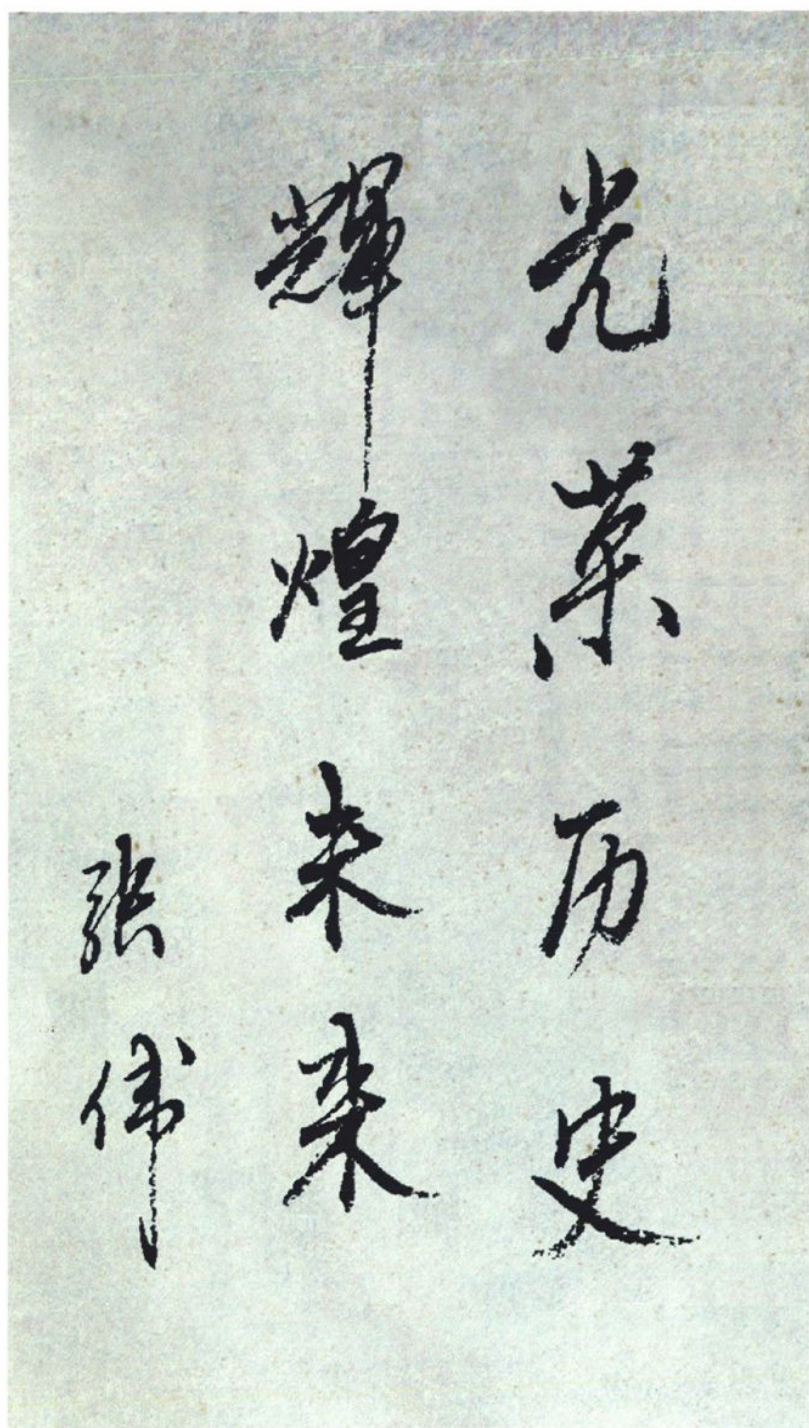 光荣历史
辉煌未来
张伟